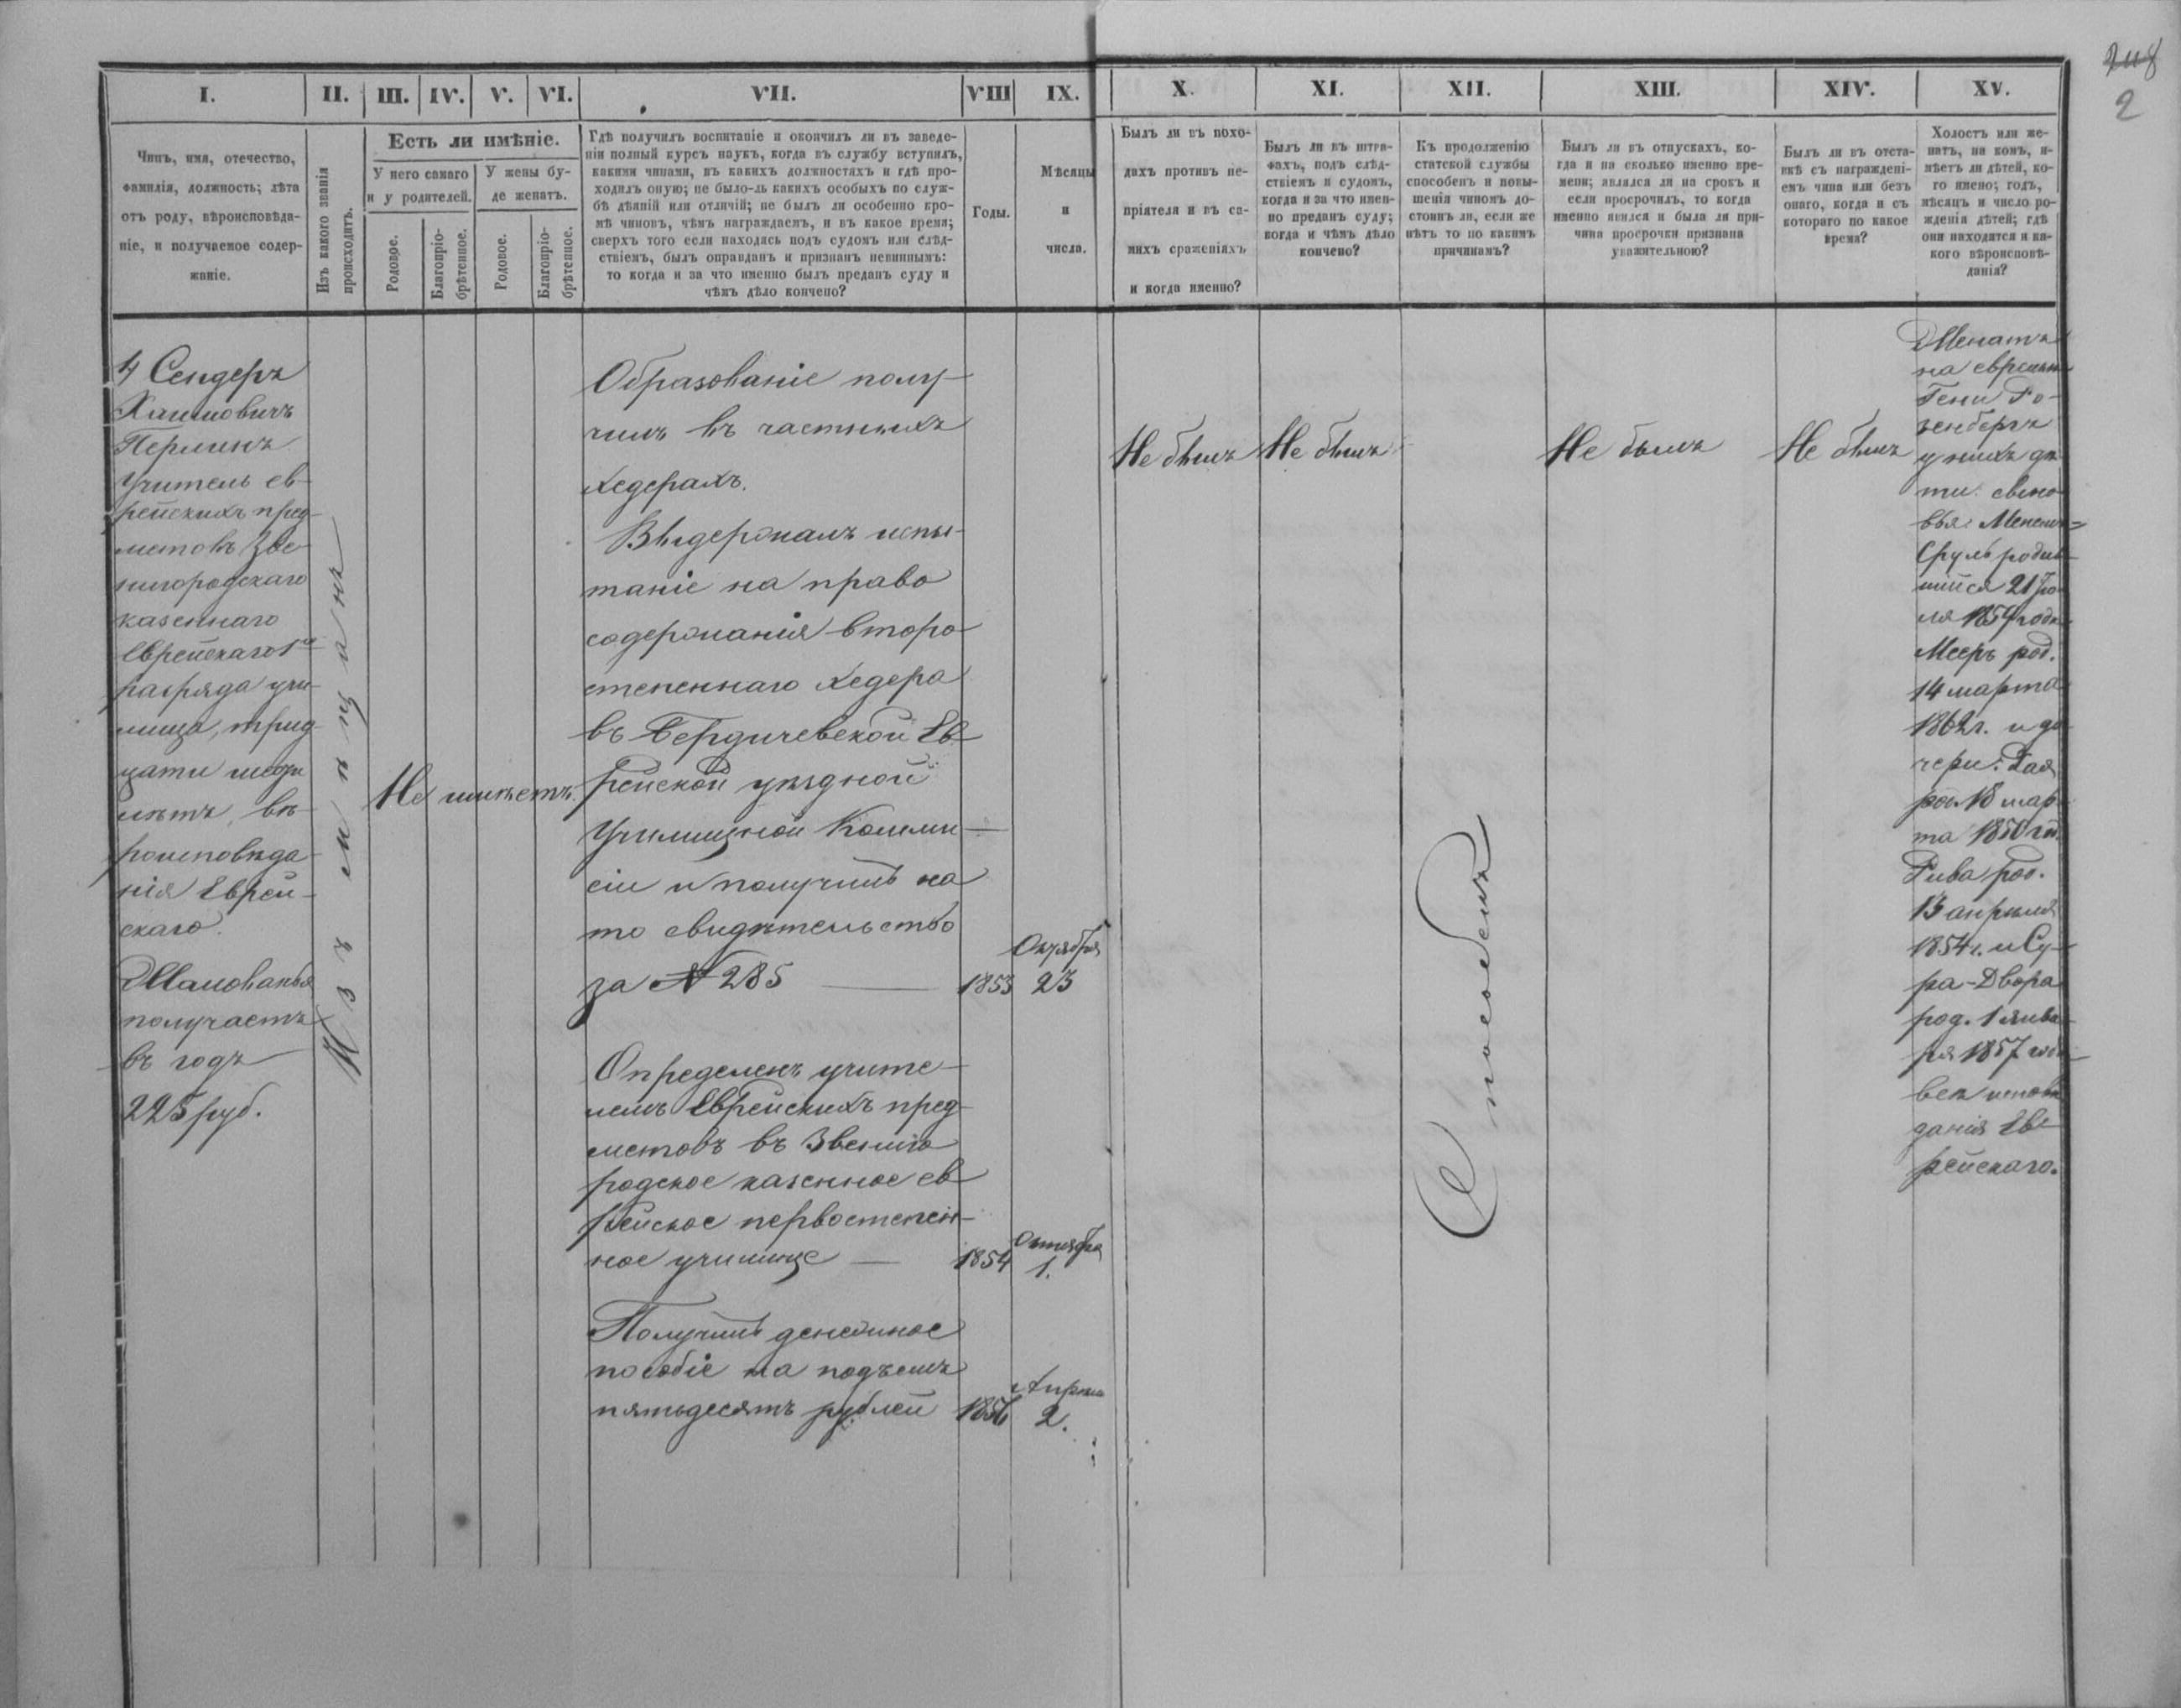 2
I. II. III. IV. V. VI. VII. VIII IX. X. XI. XII. XIII. XIV. XV.
Чинъ, имя, отечество,
фамилія, должность; лѣта
отъ роду, вѣроисповѣда-
ніе, и получаемое содер-
жаніе.
Изъ какого званія
происходитъ.
Есть ли имѣніе.
У него самаго
и у родителей.
У жены бу-
де женатъ.
Родовое.
Благопріо-
брѣтенное.
Родовое.
Благопріо-
брѣтенное.
Гдѣ получилъ воспитаніе и окончилъ ли въ заведе-
ніи полный курсъ наукъ, когда въ службу вступилъ,
какими чинами, въ какихъ должностяхъ и гдѣ про-
ходилъ оную; не было-ль какихъ особыхъ по служ-
бѣ дѣяній или отличій; не былъ ли особенно кро-
мѣ чиновъ, чѣмъ награждаемъ, и въ какое время;
сверхъ того если находясь подъ судомъ или слѣд-
ствіемъ, былъ оправданъ и признанъ невиннымъ:
то когда и за что именно былъ преданъ суду и
чѣмъ дѣло кончено?
Годы.
Мѣсяцы
и
числа.
Былъ ли въ похо-
дахъ противъ не-
пріятеля и въ са-
михъ сраженіяхъ
и когда именно?
Былъ ли въ штра-
фахъ, подъ слѣд-
ствіемъ и судомъ,
когда и за что имен-
но преданъ суду;
когда и чѣмъ дѣло
кончено?
Къ продолженію
статской службы
способенъ и повы-
шенія чиномъ до-
стоинъ ли, если же
нѣтъ то по какимъ
причинамъ?
Былъ ли въ отпускахъ, ко-
гда и на сколько именно вре-
мени; являлся ли на срокъ и
если просрочилъ, то когда
именно явился и была ли при-
чина просрочки признана
уважительною?
Былъ ли въ отста-
вкѣ съ награждені-
емъ чина или безъ
онаго, когда и съ
котораго по какое
время?
Холостъ или же-
натъ, на комъ, и-
мѣетъ ли дѣтей, ко-
го имено; годъ,
мѣсяцъ и число ро-
жденія дѣтей; гдѣ
они находятся и ка-
кого вѣроисповѣ-
данія?
4 Сендеръ
Хаимовичъ
Перлинъ
Учитель ев-
рейскихъ пред-
метовъ Зве-
нигородскаго
казеннаго
Еврейскаго 1го
разряда учи-
лища, трид-
цати шести
лѣтъ, вѣ-
роисповѣда-
нія Еврей-
скаго.
Жалованья
получаетъ
въ годъ
225 руб.
Изъ мѣщанъ
Не имѣетъ.
Образованіе полу-
чилъ въ частныхъ
хедерахъ.
Выдержалъ испы-
таніе на право
содержанія второ-
степеннаго хедера
въ Бердичевской Ев-
рейской уѣздной
Училищной Комми-
сіи и получилъ на
то свидѣтельство
за № 285 — 1853 Октября 23
Опредѣленъ учите-
лемъ Еврейскихъ пред-
метовъ въ Звениго
родское казенное ев
рейское первостепен-
ное училище — 1854 Октября 1.
Получилъ денежное
пособіе на подъемъ
пятьдесятъ рублей 1856 Апрѣля 2.
Не былъ
Не былъ
Способенъ
Не былъ
Не былъ
Женатъ
на еврейкѣ
Гени Ро-
зенбергъ
у нихъ дѣ
ти: сыно
вья: Менень-
Сруль родив-
шійся 21 Ію-
ля 1854 года
Мееръ род.
14 марта
1862 г. и до
чери: Хая
род. 18 мар-
та 1850 го
Рива род.
13 апрѣля
1854 г. и Су-
ра-Двора
род. 1 янва
ря 1857 года
всѣ исповѣ
данія Ев-
рейскаго.